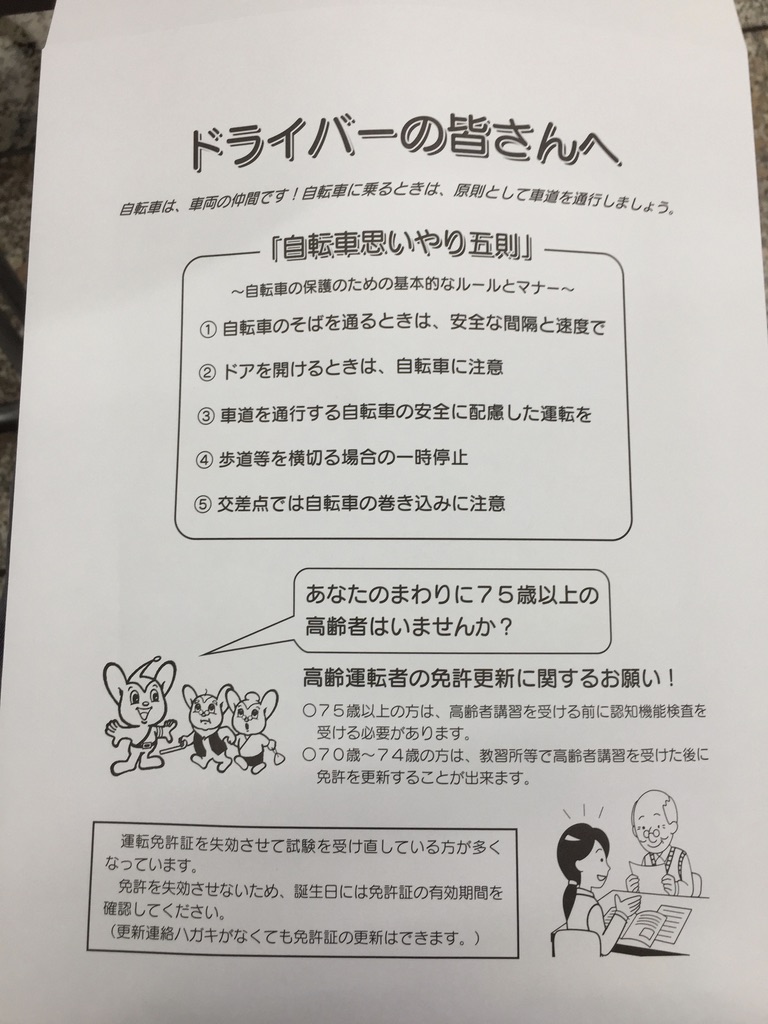 ドライバーの皆さんへ
自転車は、車両の仲間です！自転車に乗るときは、原則として車道を通行しましょう。
「自転車思いやり五則」
～自転車の保護のための基本的なルールとマナー～
① 自転車のそばを通るときは、安全な間隔と速度で
② ドアを開けるときは、自転車に注意
③ 車道を通行する自転車の安全に配慮した運転を
④ 歩道等を横切る場合の一時停止
⑤ 交差点では自転車の巻き込みに注意
あなたのまわりに７５歳以上の
高齢者はいませんか？
高齢運転者の免許更新に関するお願い！
○７５歳以上の方は、高齢者講習を受ける前に認知機能検査を
受ける必要があります。
○７０歳～７４歳の方は、教習所等で高齢者講習を受けた後に
免許を更新することが出来ます。
運転免許証を失効させて試験を受け直している方が多く
なっています。
免許を失効させないため、誕生日には免許証の有効期間を
確認してください。
（更新連絡ハガキがなくても免許証の更新はできます。）